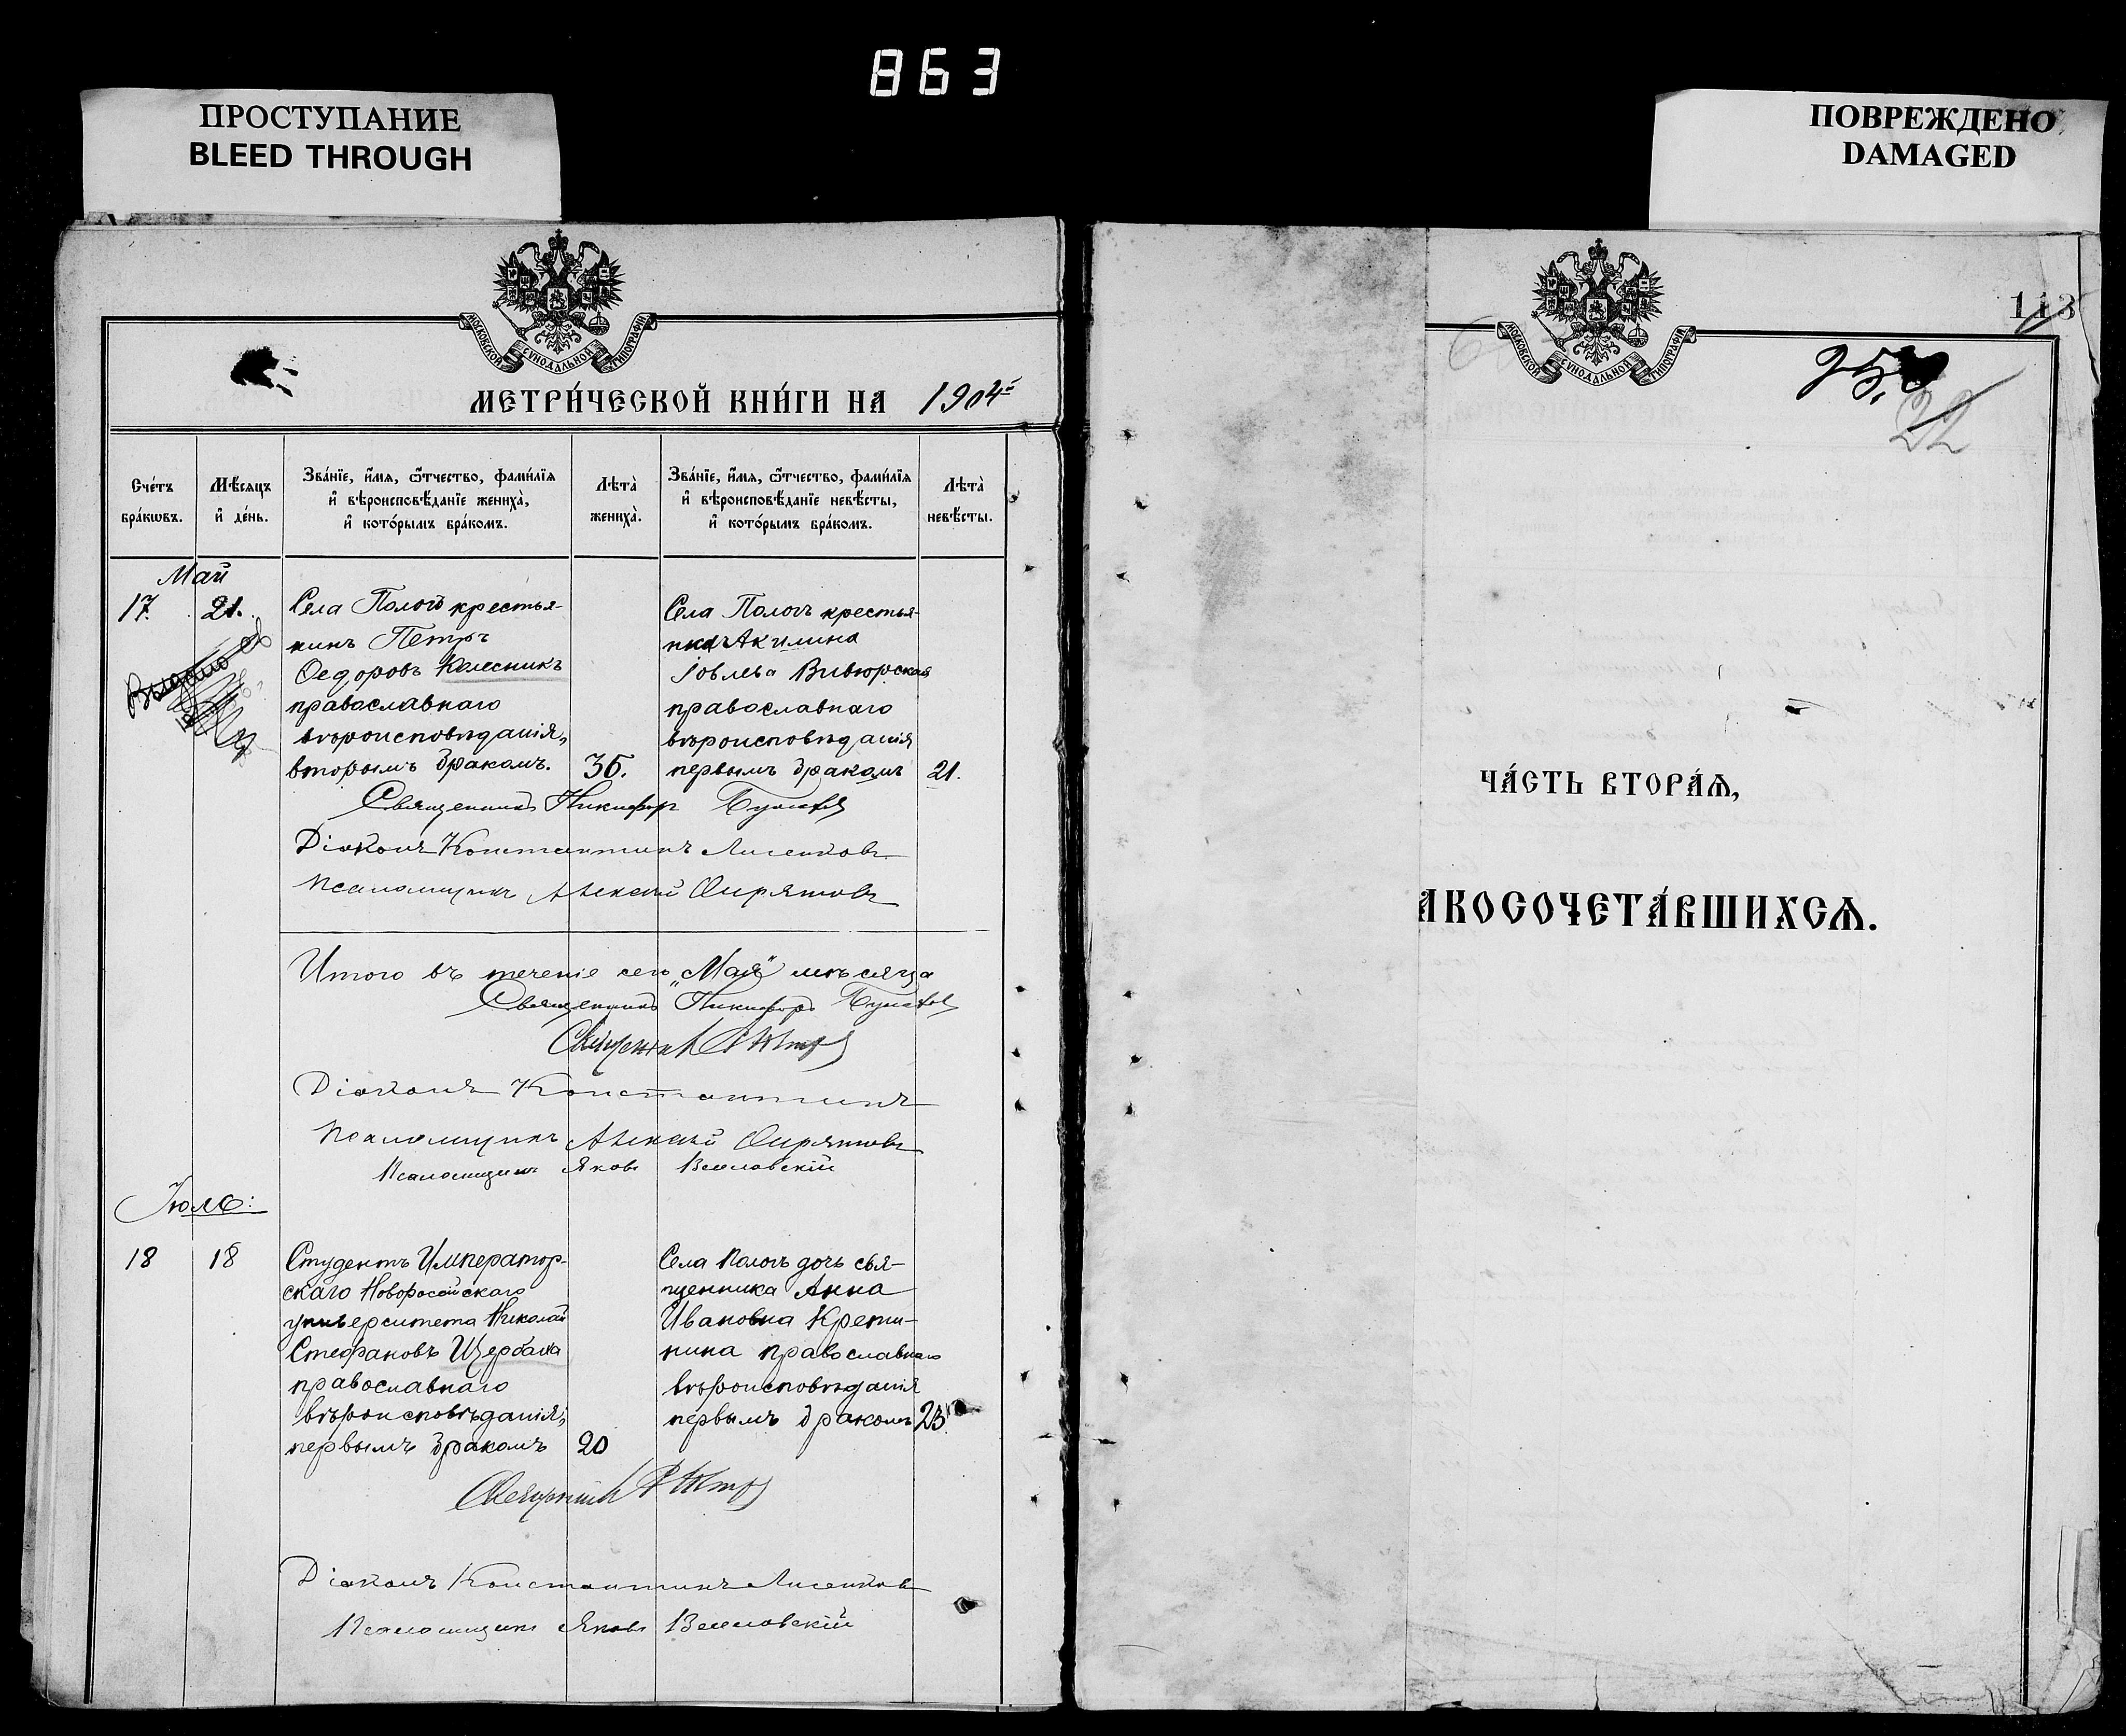 863
ПРОСТУПАНИЕ
BLEED THROUGH
ПОВРЕЖДЕНО
DAMAGED
МОСКОВСКОЙ СУНОДАЛЬНОЙ ТИПОГРАФІИ
МЕТРИ́ЧЕСКОЙ КНИ́ГИ НА 1904
Сче́тъ бра́кѡвъ.
Мѣ́сяцъ и҆ де́нь.
Зва́нїе, и҆́мя, ѻ҆́тчество, фами́лїя
и҆ вѣроисповѣ́данїе жениха̀,
и҆ кото́рымъ бра́комъ.
Лѣта̀ жениха̀.
Зва́нїе, и҆́мя, ѻ҆́тчество, фами́лїя
и҆ вѣроисповѣ́данїе невѣ́сты,
и҆ кото́рымъ бра́комъ.
Лѣта̀ невѣ́сты.
Май
17. 21.
Выдано
Села Пологъ крестья-
нинъ Петръ
Ѳедоровъ Колесникъ
православнаго
вѣроисповѣданія,
вторымъ бракомъ.
36.
Села Пологъ крестья-
нка Акилина
Іовлева Вивюрская
православнаго
вѣроисповѣданія
первымъ бракомъ
21.
Священникъ Никифоръ
Діаконъ Константинъ Лисенковъ
Псаломщикъ Алексѣй
Итого въ теченіе сего „Мая" мѣсяца
Священникъ Никифоръ
Священникъ
Діаконъ Константинъ
Псаломщикъ Алексѣй
Псаломщикъ Яковъ
Іюль:
18 18
Студентъ Император-
скаго Новоросойскаго
университета Николай
Стефановъ Щербана
православнаго
вѣроисповѣданія,
первымъ бракомъ
20
Села Пологъ дочь свя-
щенника Анна
Ивановна Крети-
нина православнаго
вѣроисповѣданія
первымъ бракомъ
23.
Священникъ
Діаконъ Константинъ Лисенковъ
Псаломщикъ Яковъ
113
МОСКОВСКОЙ СУНОДАЛЬНОЙ ТИПОГРАФІИ
25.
22
ЧА́СТЬ ВТОРА́Ѧ,
АКОСОЧЕТА́ВШИХСѦ.